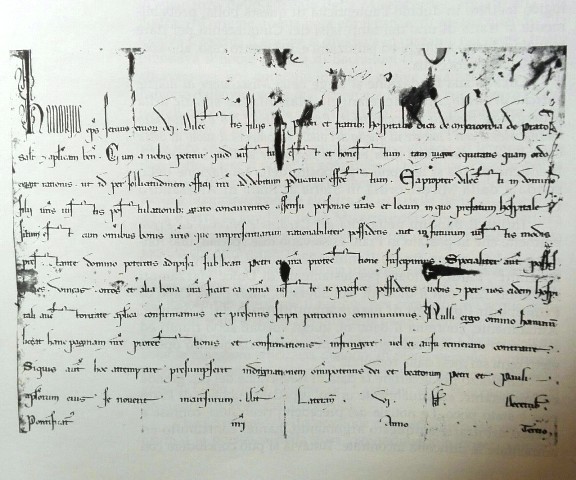 Honorius ep̄s servus servoꝝ dī. Dilectis filiis. Priori et fratrib; hospitalis dicti de misericordia de Prato
salt̄ ⁊ aplicam ben̄. Cum a nobis petitur quod iustum est et honestum. tam vigor equitatis quam ordo
exigit rationis. ut id per sollicitudinem officij nr̄i ad debitum ꝑducatur effectum. Eapropter dilecti in domino
filij vr̄is iustis postulationib; grato concurrentes assensu personas vr̄as et locum in quo prefatum hospitale
situm est cum omnibus bonis que inpresentiarum rationabiliter possidetis aut in futurum iustis modis
prestante domino poteritis adipisci sub beati petri et nr̄a protectione suscipimus. Specialiter aut̄
domos vineas ortos et alia bona vr̄a sicut ea omnia iuste ac pacifice possidetis vobis ⁊ per vos eidem hospi
tali auctoritate aplica confirmamus et presentis scripti patrocinio communimus. Nulli ergo omnino hominum
liceat hanc paginam nr̄e protectionis et confirmationis infringere vel ei ausu temerario contraire
Siquis aut̄ hoc attemptare presumpserit indignationem omipotentis dei et beatorum petri et Pauli
aplorum eius se noverit incursurum. Dat̄ Lateran̄. VI. kl̄ Decemb̄.
Pontificat̄ nr̄i Anno Tertio.